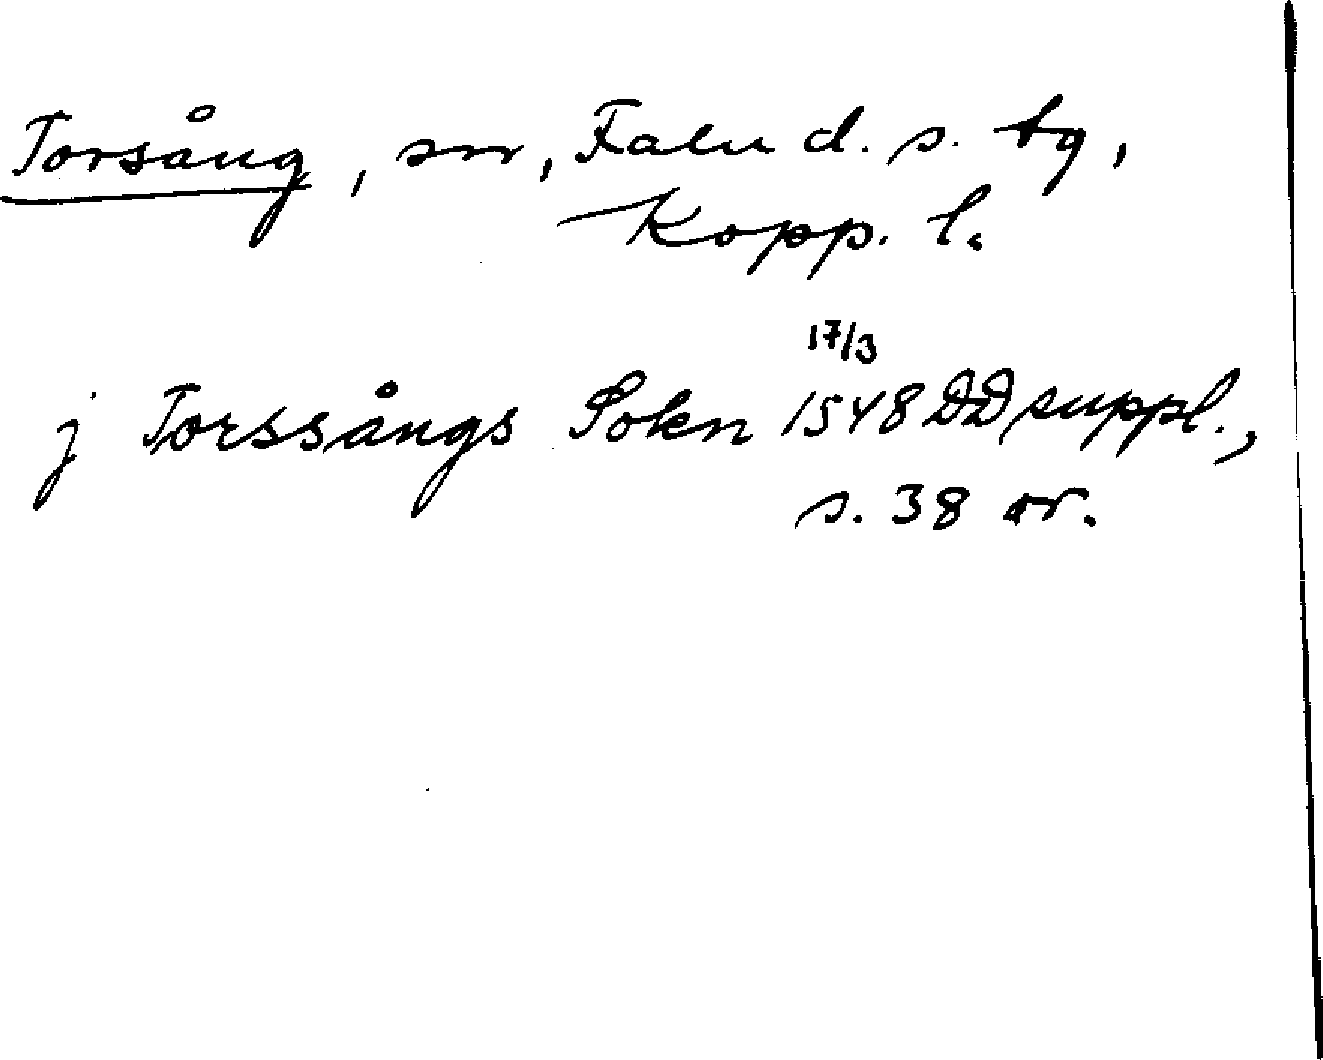 Torsång, sn, Falu d. s. tg,
Kopp. l.
17/3
j Torssångs Sokn 1548 DD suppl.,
s. 38 or.